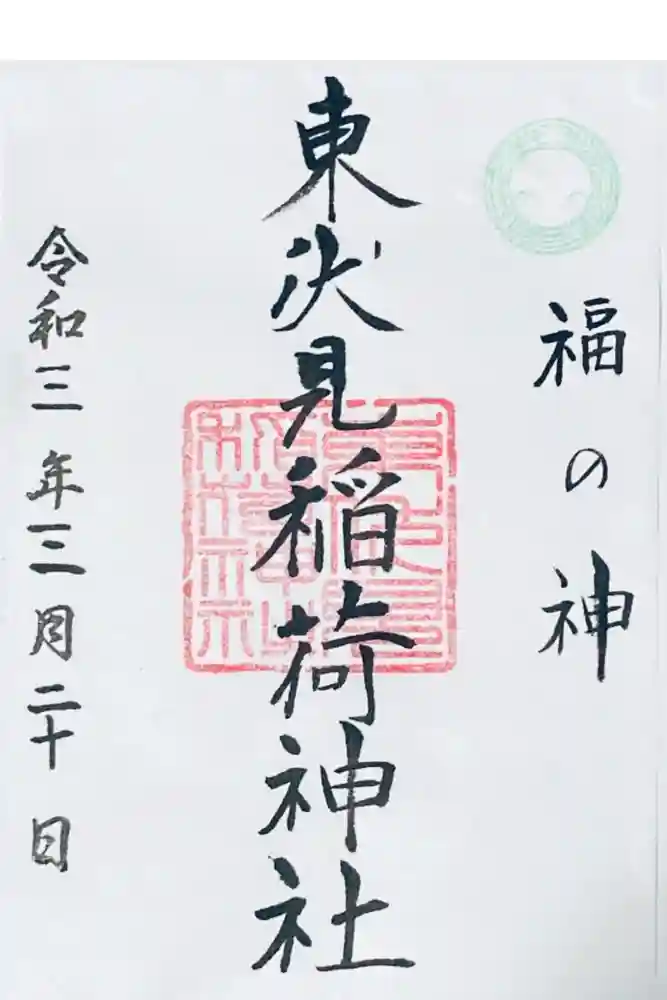 福の神
東伏見稲荷神社
令和三年三月二十日